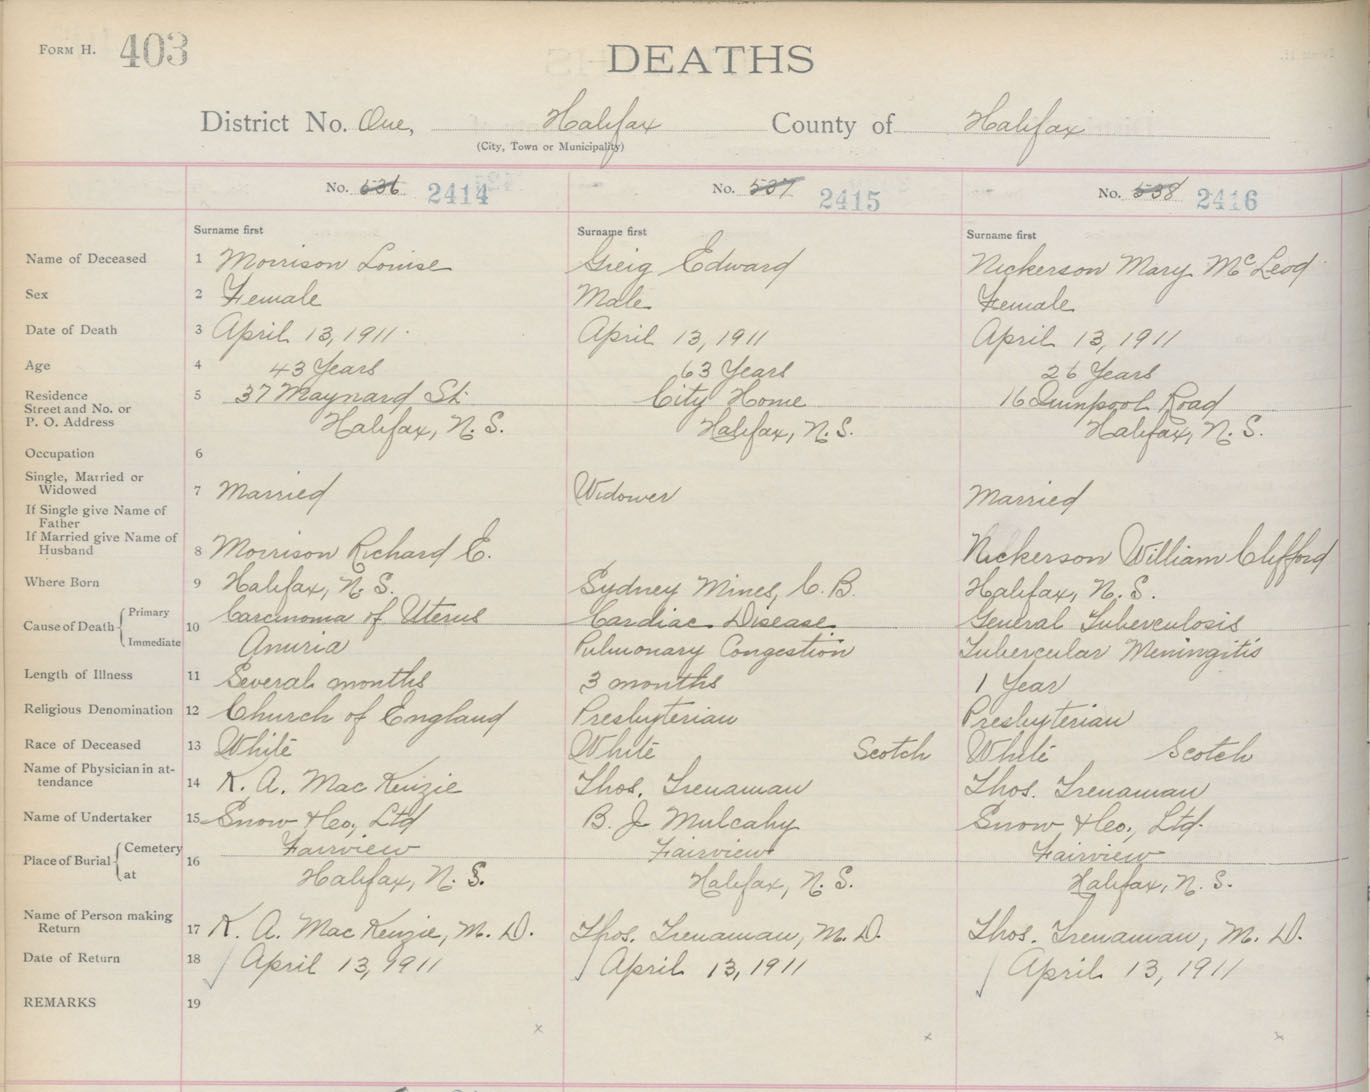 FORM H. 403
DEATHS
District No. One, Halifax County of Halifax
(City, Town or Municipality)
No. 536 2414 No. 537 2415 No. 538 2416
Surname first Surname first Surname first
Name of Deceased 1 Morrison Louise Greig Edward Nickerson Mary McLeod
Sex 2 Female Male Female
Date of Death 3 April 13, 1911 April 13, 1911 April 13, 1911
Age 4 43 Years 63 Years 26 Years
Residence 5 37 Maynard St. City Home 16 Quinpool Road
Street and No. or
P. O. Address Halifax, N. S. Halifax, N. S. Halifax, N. S.
Occupation 6
Single, Married or
Widowed 7 Married Widower Married
If Single give Name of
Father
If Married give Name of
Husband 8 Morrison Richard E. Nickerson William Clifford
Where Born 9 Halifax, N. S. Sydney Mines, C. B. Halifax, N. S.
Cause of Death Primary 10 Carcinoma of Uterus Cardiac Disease General Tuberculosis
Immediate Anuria Pulmonary Congestion Tubercular Meningitis
Length of Illness 11 Several months 3 months 1 Year
Religious Denomination 12 Church of England Presbyterian Presbyterian
Race of Deceased 13 White White Scotch White Scotch
Name of Physician in at-
tendance 14 K. A. MacKenzie Thos. Trenaman Thos. Trenaman
Name of Undertaker 15 Snow & Co., Ltd B. J Mulcahy Snow & Co., Ltd.
Place of Burial Cemetery 16 Fairview Fairview Fairview
at Halifax, N. S. Halifax, N. S. Halifax, N. S.
Name of Person making
Return 17 K. A. MacKenzie, M. D. Thos. Trenaman, M. D. Thos. Trenaman, M. D.
Date of Return 18 April 13, 1911 April 13, 1911 April 13, 1911
REMARKS 19